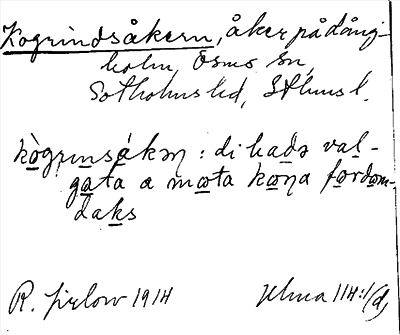 Kogrindsåkern, åker på dång-
holm, Ösmo sn,
Sotholms hd, Sthms l.
kògrinsákəṇ : di hadə val-
gata a mɷta kɷṇa fɷrdɷm-
daks
R. 1914 Ulma 114:1/(d)